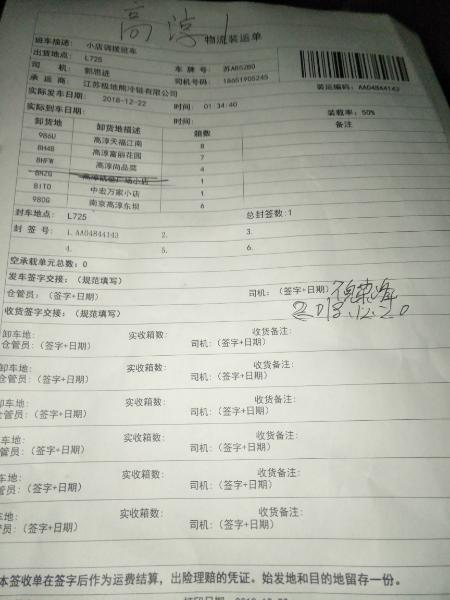 高淳1
物流装运单
班车描述： 小店调拨班车
出货地点： L725
司 机： 郭恩进 车 牌 号： 苏A65280
承 运 商： 江苏极地熊冷链有限公司 司机号码： 18651905245
装运编码：AA04844143
实际发车日期： 2018-12-22 时间： 01:34:40
实际到车日期： 时间： 装载率：50%
卸货地 卸货地描述 箱数 备注
986U 高淳天福江南 8
BH4B 高淳富丽花园 7
BHFW 高淳尚品奕 4
BHZG 1
B1T0 中宏万家小店 1
980G 南京高淳东坝 6
封车地点： L725 总封签数：1
封 签 号： 1.AA04844143 2. 3.
4. 5. 6.
空承载单元总数：0
发车签字交接：（规范填写）
仓管员：（签字+日期） 司机：（签字+日期）
2018.12.20
收货签字交接：（规范填写）
卸车地： 实收箱数： 收货备注：
仓管员：（签字+日期） 司机：（签字+日期）
卸车地： 实收箱数： 收货备注：
仓管员：（签字+日期） 司机：（签字+日期）
卸车地： 实收箱数： 收货备注：
仓管员：（签字+日期） 司机：（签字+日期）
车地： 实收箱数： 收货备注：
管员：（签字+日期） 司机：（签字+日期）
车地： 实收箱数： 收货备注：
管员：（签字+日期） 司机：（签字+日期）
车地： 实收箱数： 收货备注：
管员：（签字+日期） 司机：（签字+日期）
本签收单在签字后作为运费结算，出险理赔的凭证。始发地和目的地留存一份。